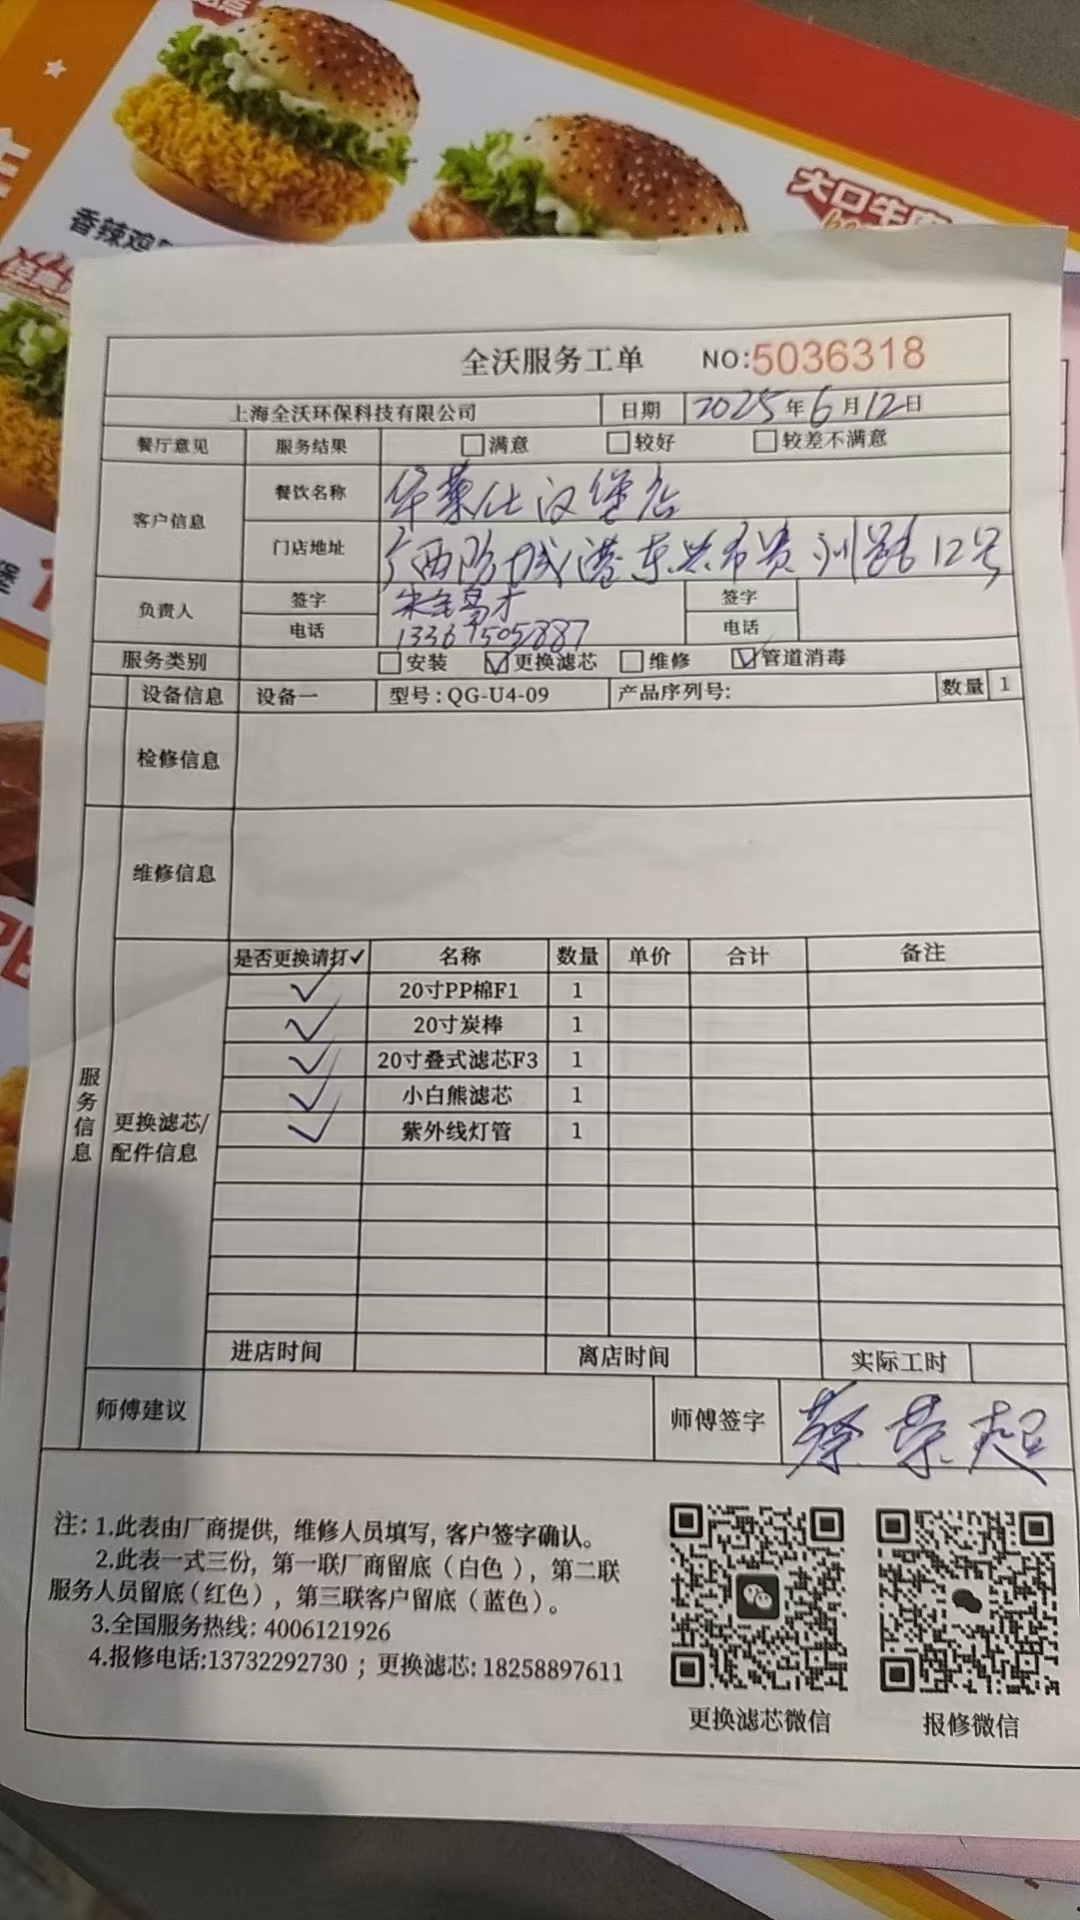 香辣鸡
大口牛
经典
全沃服务工单 NO:5036318
上海全沃环保科技有限公司 日期 2025年6月12日
餐厅意见 服务结果 □满意 □较好 □较差不满意
客户信息 餐饮名称 华莱仕汉堡店
门店地址 广西防城港东兴市贵州路12号
负责人 签字 签字
电话 13367505887 电话
服务类别 □安装 ☑更换滤芯 □维修 ☑管道消毒
设备信息 设备一 型号:QG-U4-09 产品序列号: 数量 1
检修信息
维修信息
服务信息
更换滤芯/配件信息
是否更换请打✓ 名称 数量 单价 合计 备注
✓ 20寸PP棉F1 1
✓ 20寸炭棒 1
✓ 20寸叠式滤芯F3 1
✓ 小白熊滤芯 1
✓ 紫外线灯管 1
进店时间 离店时间 实际工时
师傅建议 师傅签字 蔡荣起
注: 1.此表由厂商提供, 维修人员填写, 客户签字确认。
2.此表一式三份, 第一联厂商留底 (白色), 第二联
服务人员留底 (红色), 第三联客户留底 (蓝色)。
3.全国服务热线: 4006121926
4.报修电话:13732292730 ; 更换滤芯: 18258897611
更换滤芯微信 报修微信